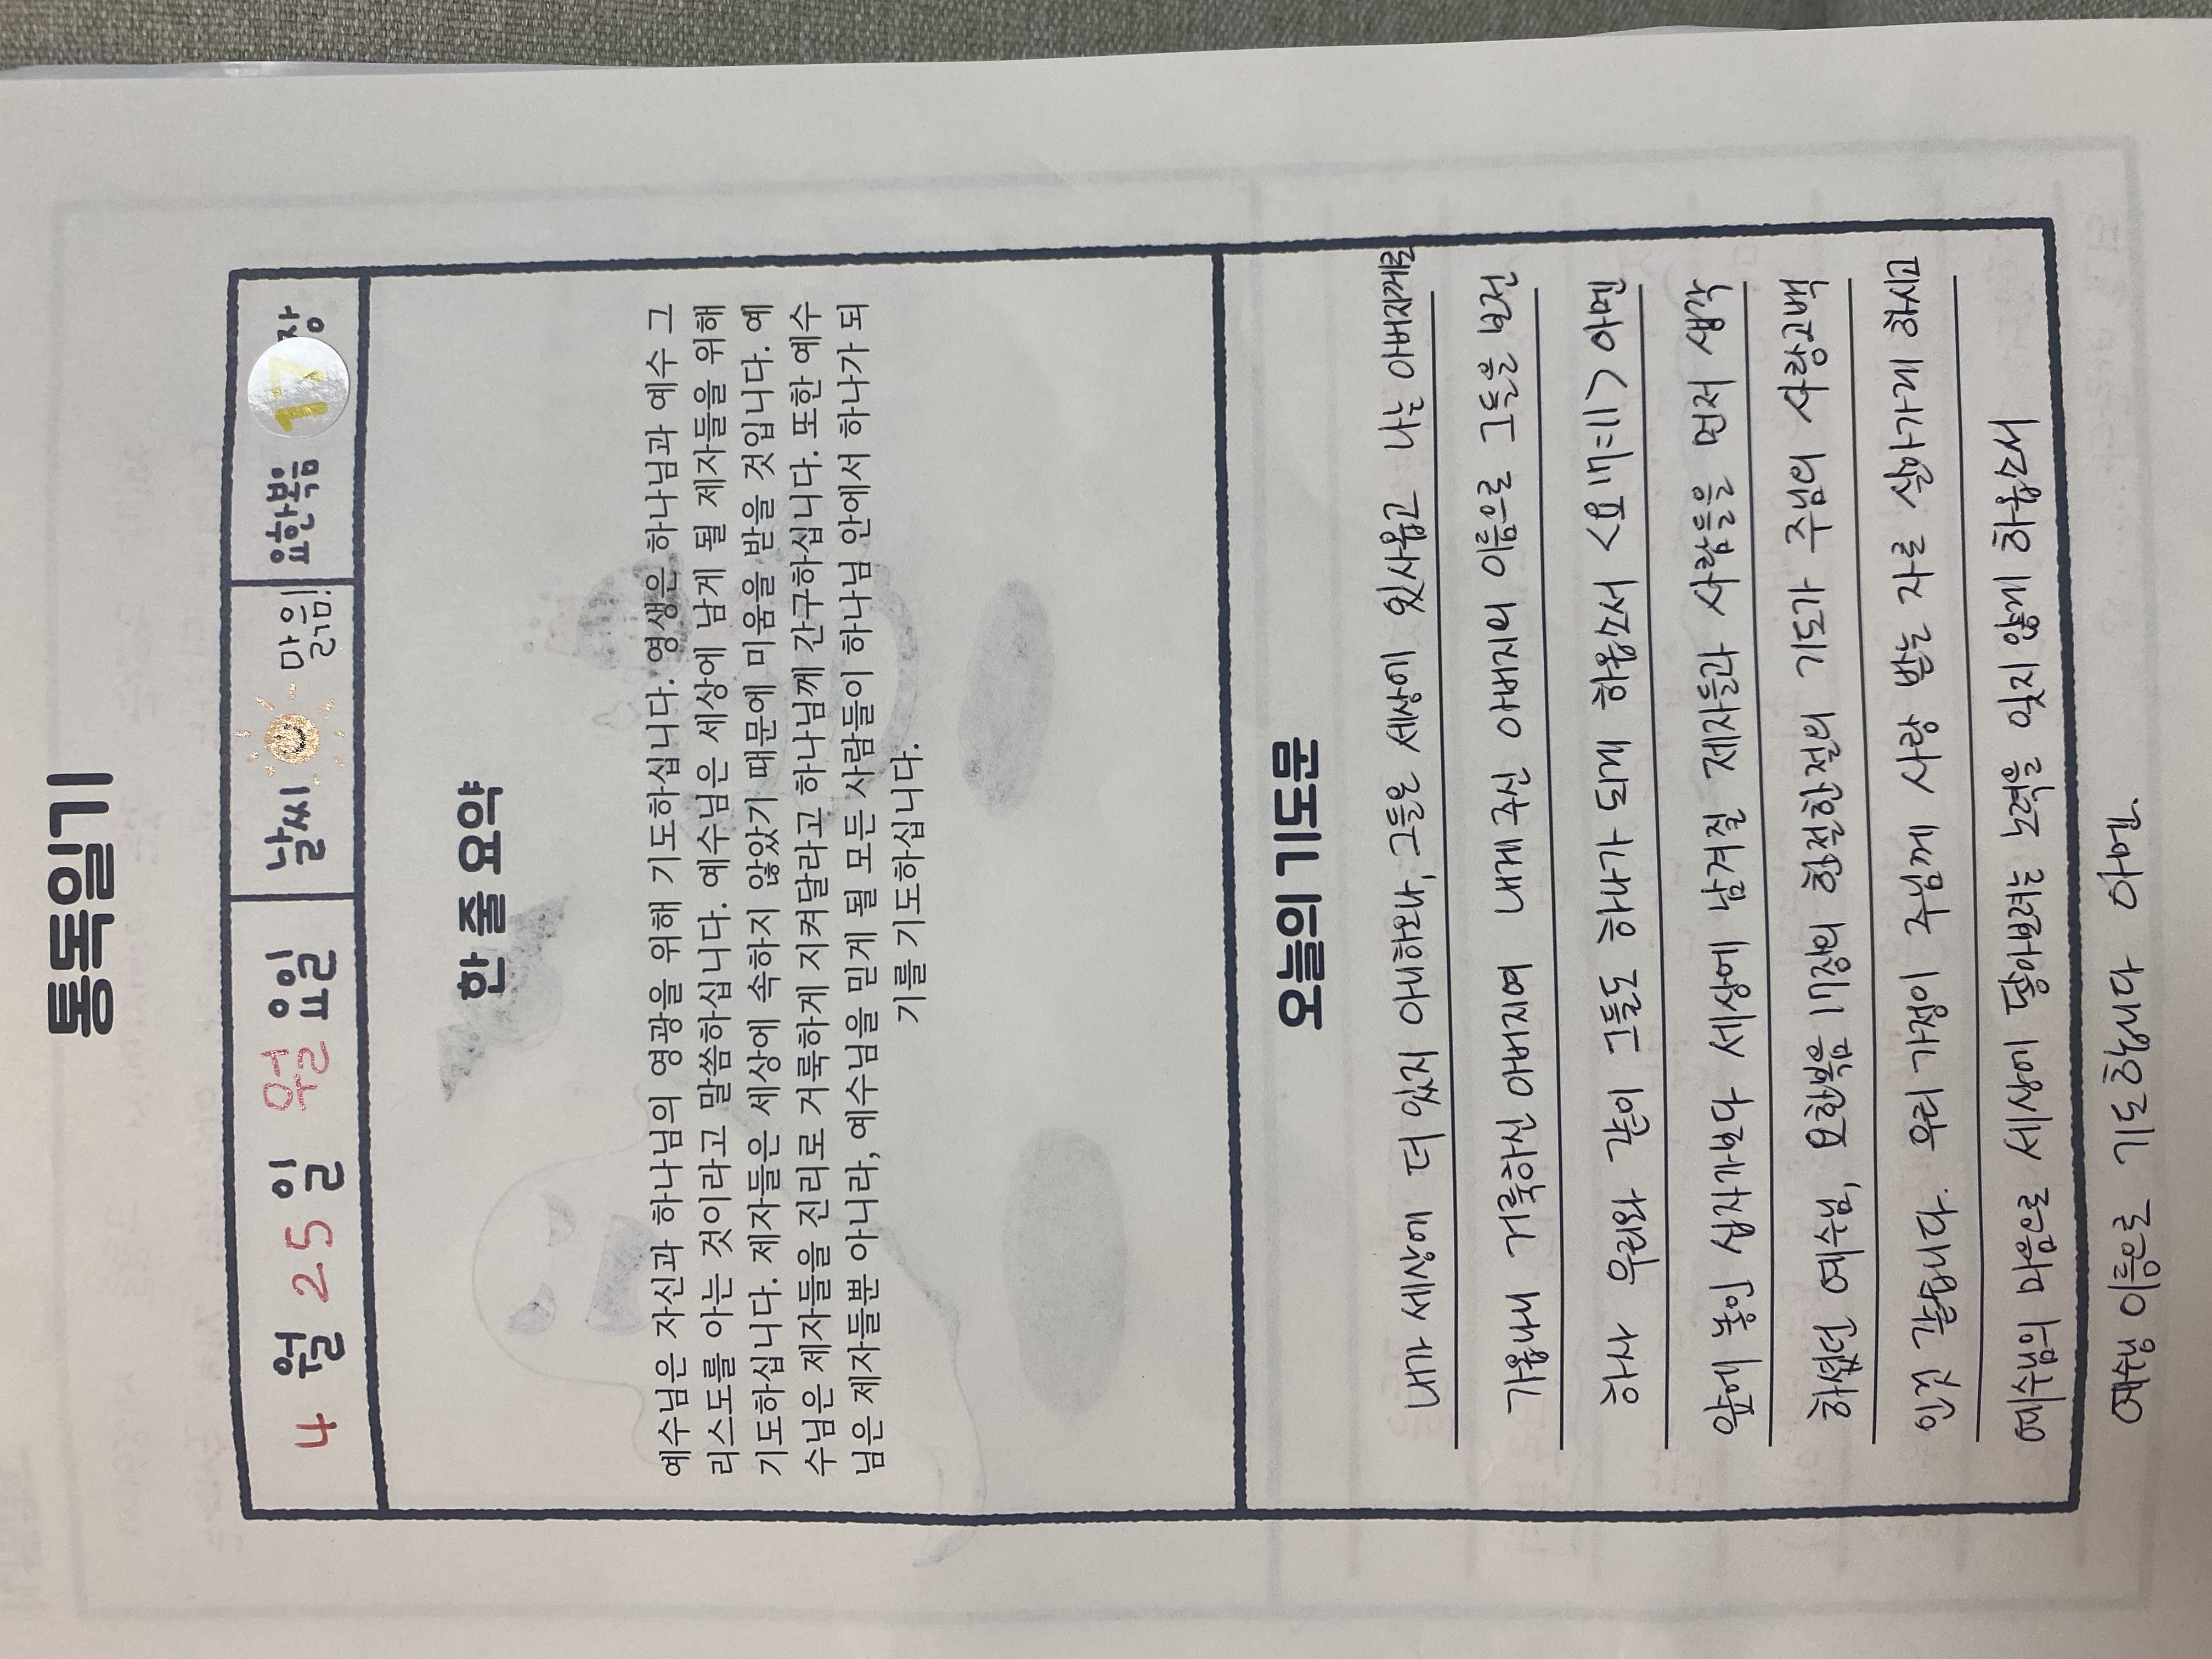 통독일기
4 월 25 일 월 요일 날씨 맑음! 요한복음 17 장
한 줄 요약
예수님은 자신과 하나님의 영광을 위해 기도하십니다. 영생은 하나님과 예수 그
리스도를 아는 것이라고 말씀하십니다. 예수님은 세상에 남게 될 제자들을 위해
기도하십니다. 제자들은 세상에 속하지 않았기 때문에 미움을 받을 것입니다. 예
수님은 제자들을 진리로 거룩하게 지켜달라고 하나님께 간구하십니다. 또한 예수
님은 제자들뿐 아니라, 예수님을 믿게 될 모든 사람들이 하나님 안에서 하나가 되
기를 기도하십니다.
오늘의 기도문
내가 세상에 더 있지 아니하오나, 그들은 세상에 있사옵고 나는 아버지께로
가옵나니 거룩하신 아버지여 내게 주신 아버지의 이름으로 그들을 보전
하사 우리와 같이 그들도 하나가 되게 하옵소서 <요 17:11> 아멘
앞에 놓인 십자가보다 세상에 남겨질 제자들과 사람들을 먼저 생각
하셨던 예수님, 요한복음 17장의 한절한절의 기도가 주님의 사랑고백
인것 같습니다. 우리 가정이 주님께 사랑 받는 자로 살아가게 하시고
예수님의 마음으로 세상에 닿아보려는 노력을 잊지 않게 하옵소서
예수님 이름으로 기도합니다 아멘.